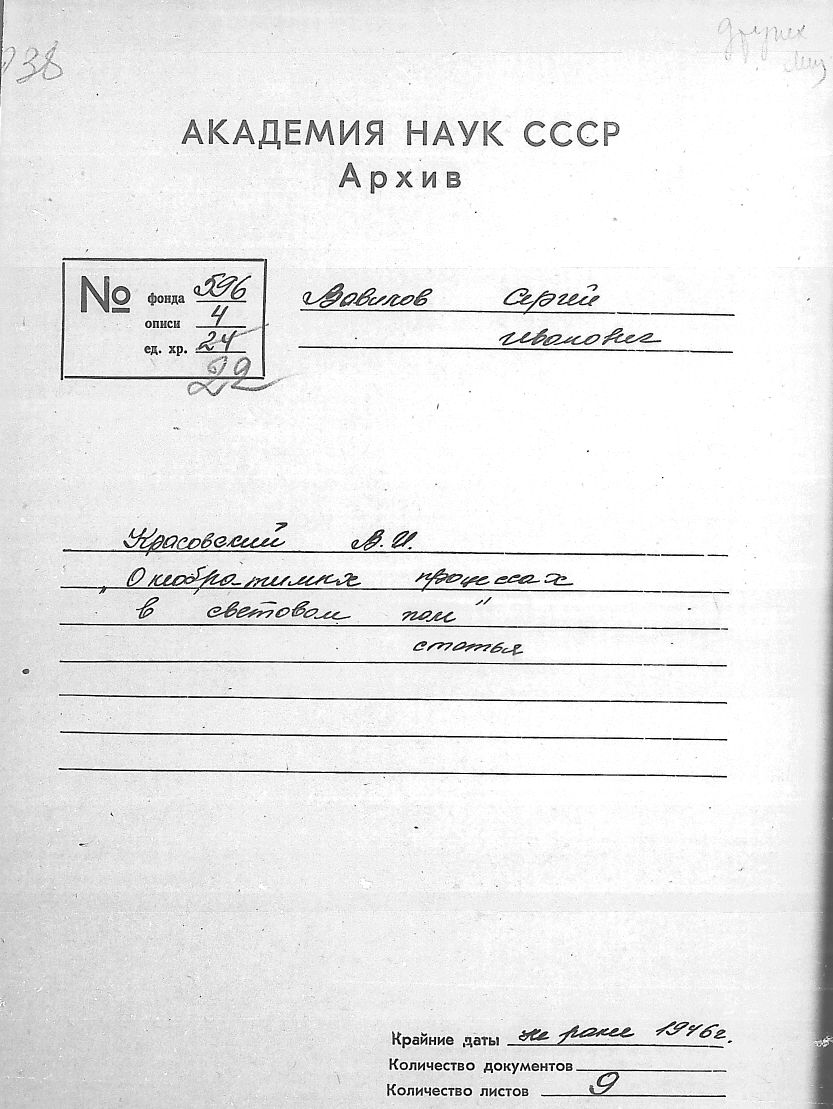 038
других
лиц
АКАДЕМИЯ НАУК СССР
Архив
№ фонда 596
описи 4
ед. хр. 24
22
Вавилов Сергей
Иванович
Красовский В.И.
„О необратимых процессах
в световом поле"
статья
Крайние даты не ранее 1946г.
Количество документов
Количество листов 9